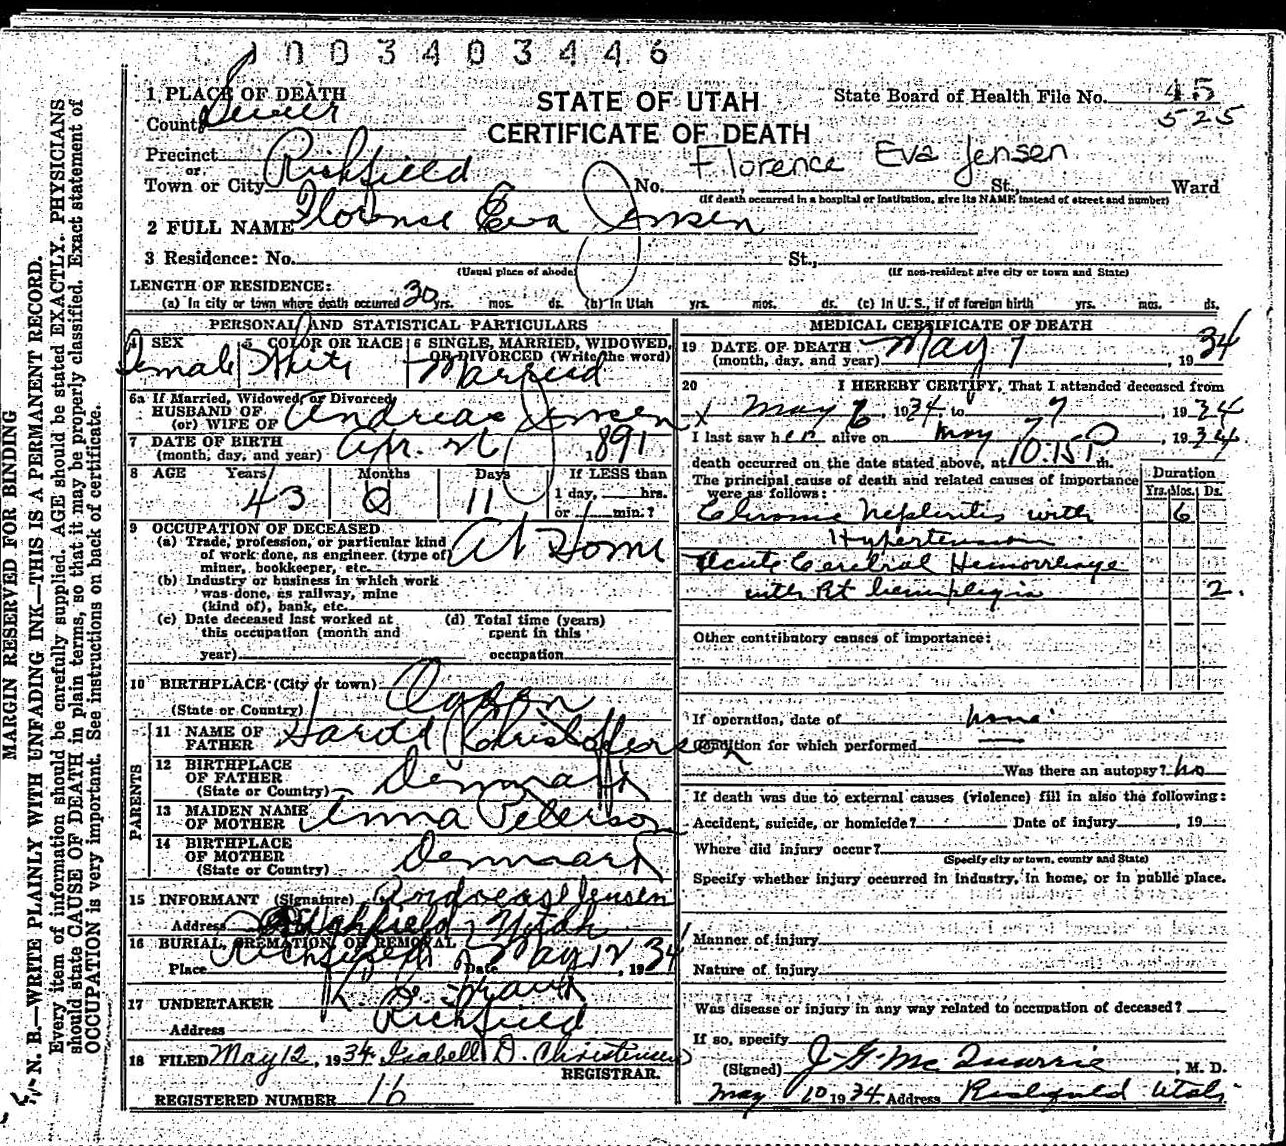 1003403446
MARGIN RESERVED FOR BINDING
N. B.—WRITE PLAINLY WITH UNFADING INK—THIS IS A PERMANENT RECORD.
Every item of information should be carefully supplied. AGE should be stated EXACTLY. PHYSICIANS
should state CAUSE OF DEATH in plain terms, so that it may be properly classified. Exact statement of
OCCUPATION is very important. See instructions on back of certificate.
1 PLACE OF DEATH
County Sevier
STATE OF UTAH
CERTIFICATE OF DEATH
State Board of Health File No. 45
525
Precinct
or
Town or City Richfield No. St., Ward
Florence Eva Jensen
(If death occurred in a hospital or institution, give its NAME instead of street and number)
2 FULL NAME Florence Eva Jensen
3 Residence: No. St.,
(Usual place of abode) (If non-resident give city or town and State)
LENGTH OF RESIDENCE:
(a) In city or town where death occurred 30 yrs. mos. ds. (b) In Utah yrs. mos. ds. (c) In U. S., if of foreign birth yrs. mos. ds.
PERSONAL AND STATISTICAL PARTICULARS
4 SEX 5 COLOR OR RACE 6 SINGLE, MARRIED, WIDOWED,
OR DIVORCED (Write the word)
Female White Married
6a If Married, Widowed, or Divorced
HUSBAND OF
(or) WIFE OF Andreas Jensen
7 DATE OF BIRTH
(month, day, and year) Apr. 1891
8 AGE Years Months Days If LESS than
43 0 11 1 day, hrs.
or min.?
9 OCCUPATION OF DECEASED
(a) Trade, profession, or particular kind
of work done, as engineer, (type of
miner, bookkeeper, etc. At Home
(b) Industry or business in which work
was done, as railway, mine
(kind of), bank, etc.
(c) Date deceased last worked at
this occupation (month and
year)
(d) Total time (years)
spent in this
occupation
10 BIRTHPLACE (City or town)
(State or Country) Ogden
PARENTS
11 NAME OF
FATHER Harold Christofferson
12 BIRTHPLACE
OF FATHER
(State or Country) Denmark
13 MAIDEN NAME
OF MOTHER Anna Peterson
14 BIRTHPLACE
OF MOTHER
(State or Country) Denmark
15 INFORMANT (Signature) Andreas Jensen
Address Richfield Utah
16 BURIAL, CREMATION, OR REMOVAL
Place Richfield Date May 12, 1934
17 UNDERTAKER
Address Richfield
18 FILED May 12, 1934. Isabell D. Christensen
REGISTRAR.
REGISTERED NUMBER 16
MEDICAL CERTIFICATE OF DEATH
19 DATE OF DEATH
(month, day, and year) May 7 1934
20 I HEREBY CERTIFY, That I attended deceased from
May 6, 1934, to 7, 1934
I last saw her alive on May 7, 1934.
death occurred on the date stated above, at 10:15 P m.
The principal cause of death and related causes of importance
were as follows:
Duration
Yrs. Mos. Ds.
Chronic Nephritis with 6
Hypertension
Acute Cerebral Hemorrhage
with Rt hemiplegia 2.
Other contributory causes of importance:
If operation, date of none
Condition for which performed
Was there an autopsy? no
If death was due to external causes (violence) fill in also the following:
Accident, suicide, or homicide? Date of injury , 19
Where did injury occur?
(Specify city or town, county and State)
Specify whether injury occurred in industry, in home, or in public place.
Manner of injury
Nature of injury
Was disease or injury in any way related to occupation of deceased?
If so, specify
(Signed) J. G. McQuarrie, M. D.
May 10 1934 Address Richfield Utah